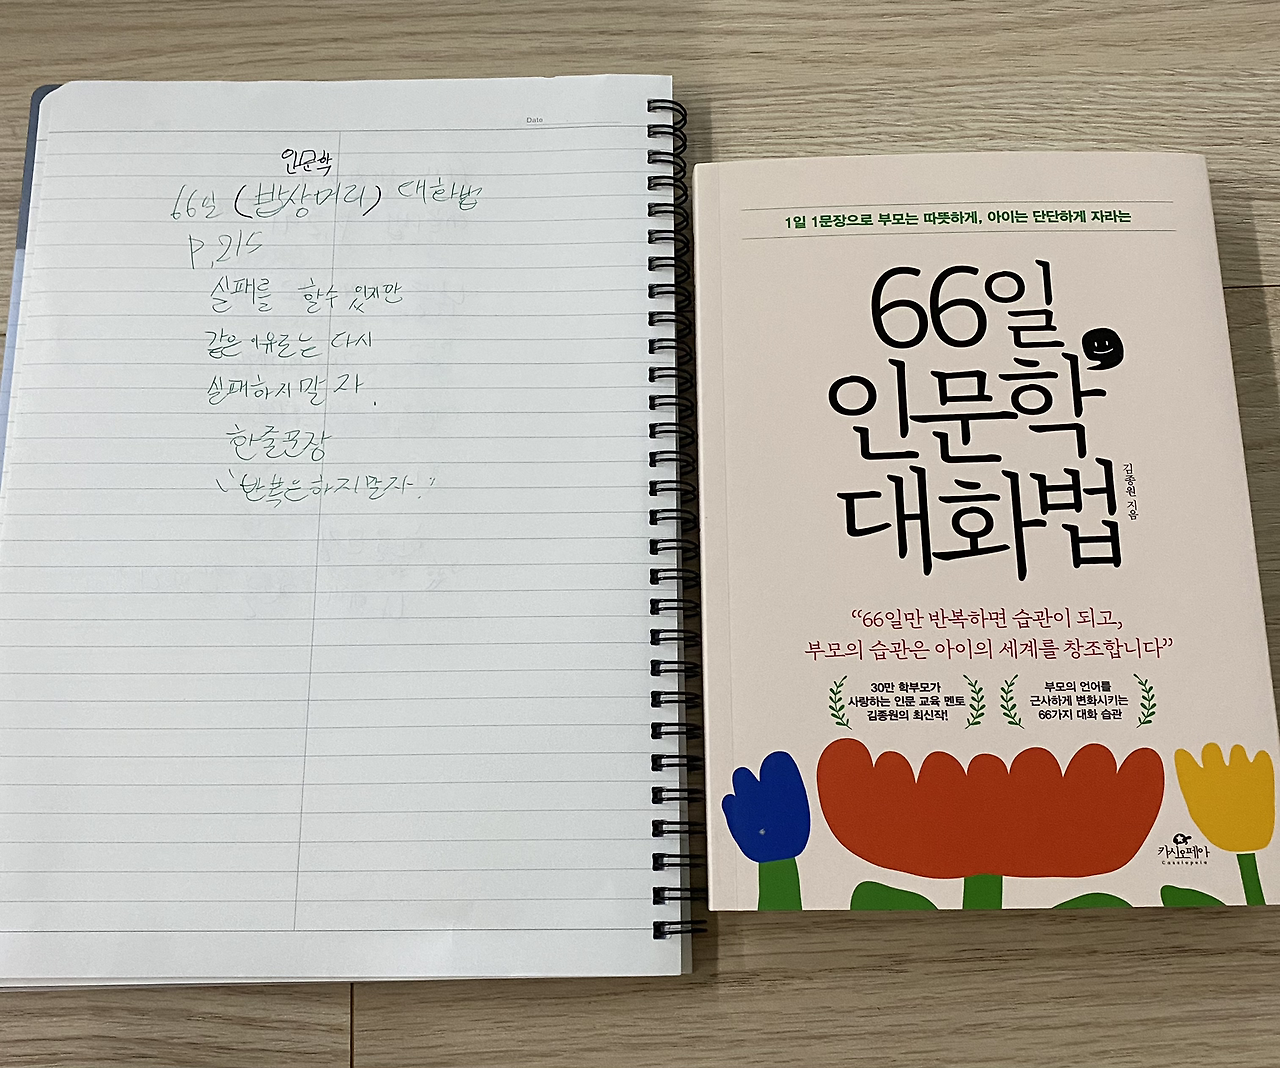 Date
인문학
66일 (밥상머리) 대화법
P.215
실패를 할수 있지만
같은 이유로는 다시
실패하지말자.
한줄문장
"반복은하지말자."
1일 1문장으로 부모는 따뜻하게, 아이는 단단하게 자라는
66일
인문학
대화법
김종원 지음
“66일만 반복하면 습관이 되고,
부모의 습관은 아이의 세계를 창조합니다”
30만 학부모가
사랑하는 인문 교육 멘토
김종원의 최신작!
부모의 언어를
근사하게 변화시키는
66가지 대화 습관
카시오페아
Cassiopeia